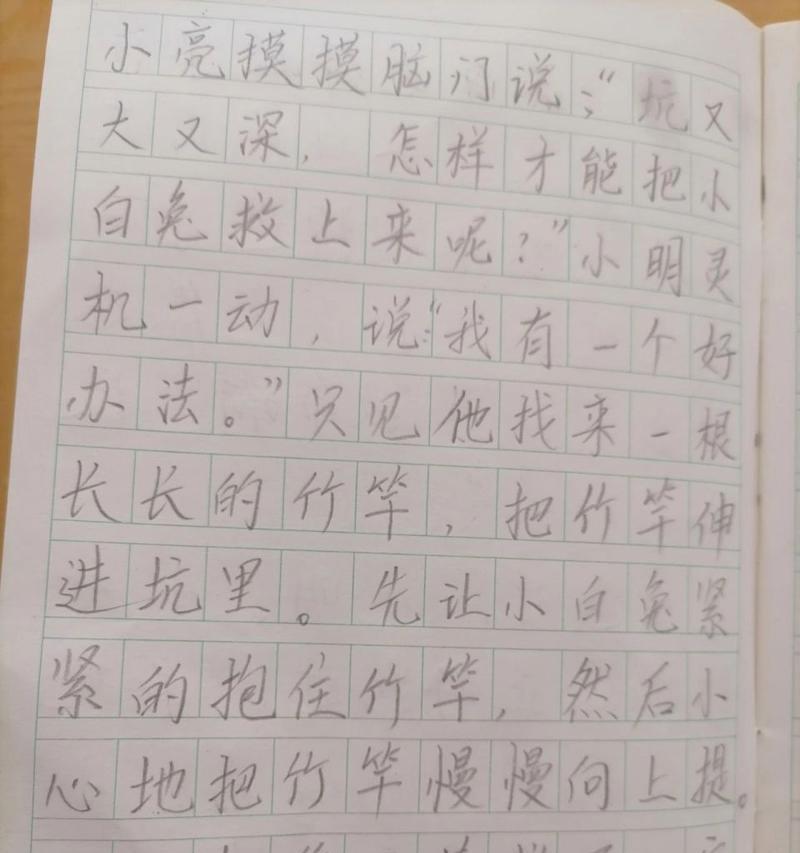 小亮摸摸脑门说:“坑又
大又深,怎样才能把小
白兔救上来呢?”小明灵
机一动,说:“我有一个好
办法。”只见他找来一根
长长的竹竿,把竹竿伸
进坑里。先让小白兔紧
紧的抱住竹竿,然后小
心地把竹竿慢慢向上提。